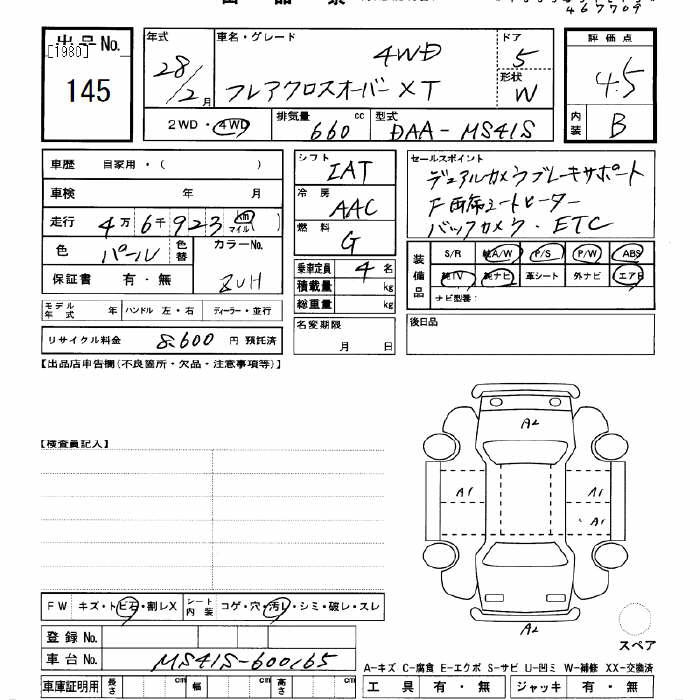 467709
出品No.
[1980]
145
年式
28/2月
車名・グレード
4WD
フレアクロスオーバー XT
ドア
5
形状
W
評価点
4.5
内装
B
2WD・4WD
排気量
660 cc
型式
DAA-MS41S
車歴 自家用・( )
車検 年 月
走行 4万6千923 km マイル ( )
色 パール 色替 カラーNo.
ZUH
保証書 有・無
モデル年式 年 ハンドル 左・右 ディーラー・並行
リサイクル料金 8,600 円 預託済
シフト
IAT
冷房
AAC
燃料
G
乗車定員 4 名
積載量 kg
総重量 kg
名変期限
月 日
セールスポイント
デュアルカメラブレーキサポート
F両席シートヒーター
バックカメラ・ETC
装備品
S/R 純A/W P/S P/W ABS
純TV 純ナビ 革シート 外ナビ エアB
ナビ型番:
後日品
【出品店申告欄(不良箇所・欠品・注意事項等)】
【検査員記入】
A2
A1 A1
A1
A2
スペア
FW キズ・トビ石・割レX シート内装 コゲ・穴・汚レ・シミ・破レ・スレ
登録No.
車台No. MS41S-600165
車庫証明用 長さ cm 幅 cm 高さ cm
A-キズ C-腐食 E-エクボ S-サビ U-凹ミ W-補修 XX-交換済
工具 有・無 ジャッキ 有・無